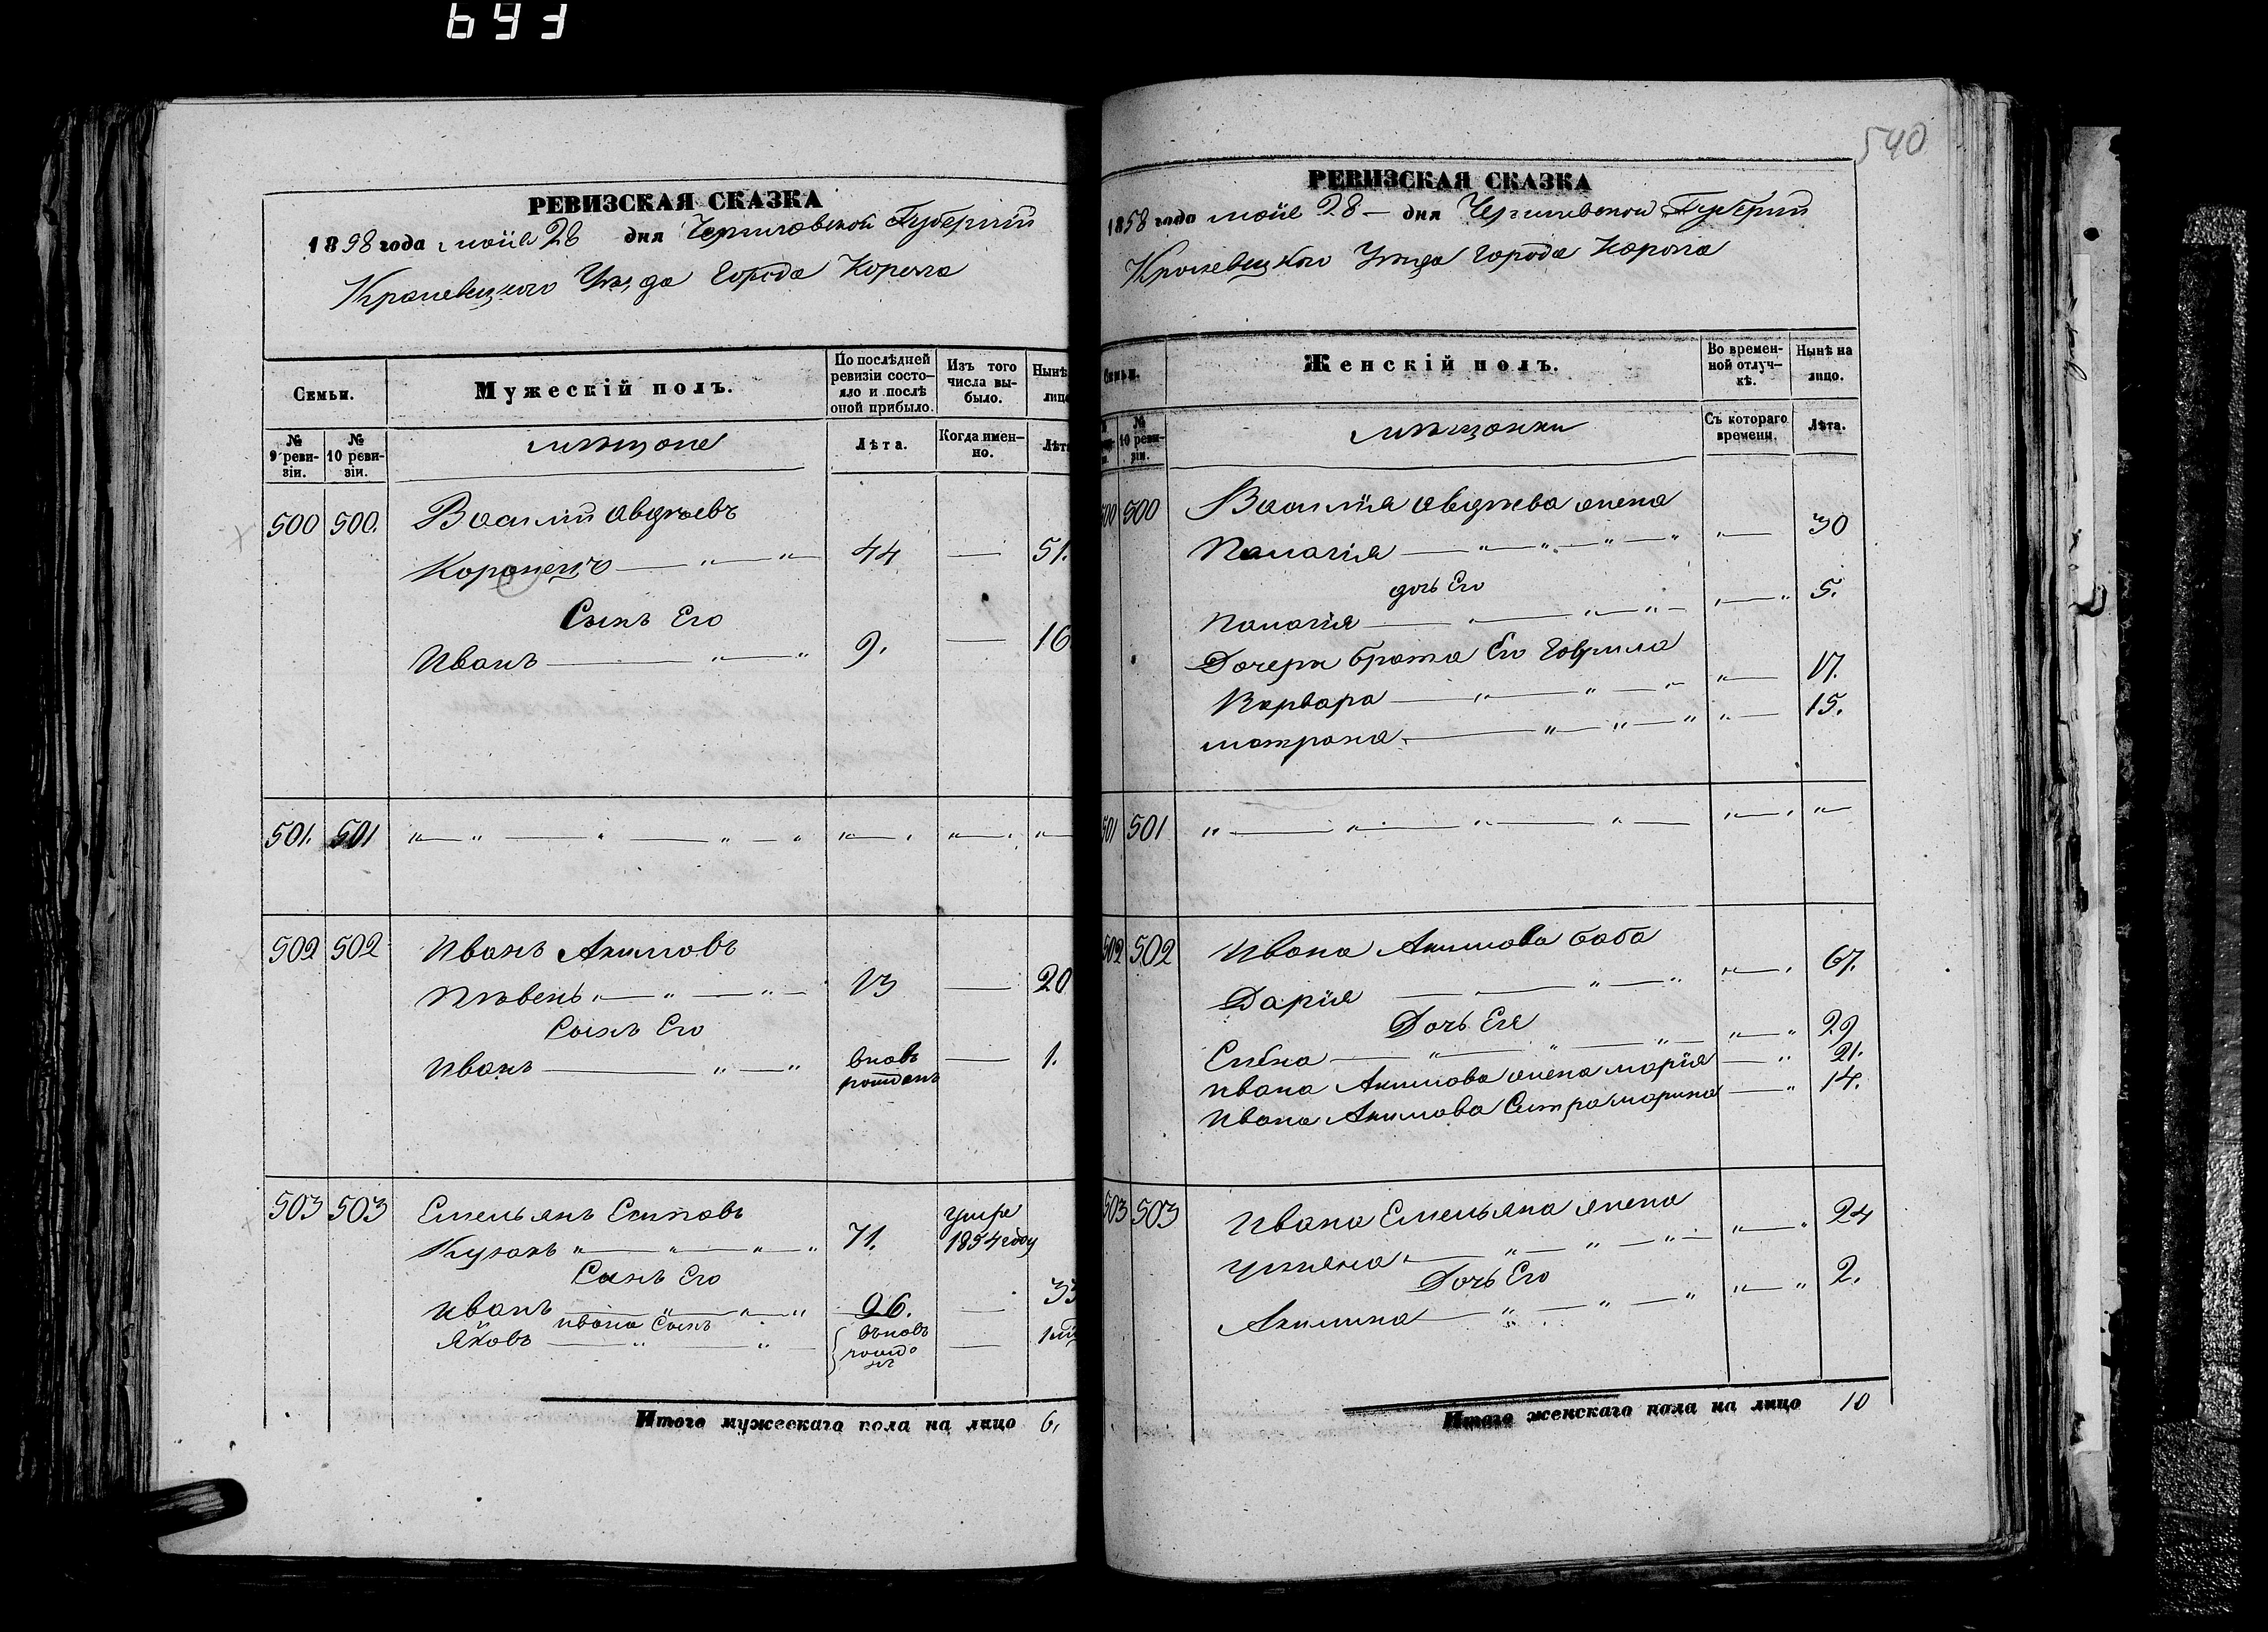 693
РЕВИЗСКАЯ СКАЗКА
1858 года маія 28 дня Черниговской Губерніи
Кролевецкого Уѣзда Города Коропа
Семьи.
Мужескій полъ.
По послѣдней ревизіи состояло и послѣ оной прибыло.
Изъ того числа выбыло.
Нынѣ
лицо
№ 9 ревизіи.
№ 10 ревизіи.
мѣщане
Лѣта.
Когда именно.
Лѣта
500 500. Василій Авдѣевъ
44 — 51.
Сынъ Его
Иванъ 9. — 16
501. 501
502 502 Иванъ Акимовъ
13 — 20
Сынъ Его
Иванъ вновь рожденъ — 1.
503 503 Емельянъ Есиповъ
71. умре 1854 году
Сынъ Его
Иванъ 26. — 33
Ивана Сынъ
Яковъ вьновь рожденъ —
Итого мужескаго пола на лицо 6.
540
РЕВИЗСКАЯ СКАЗКА
1858 года маіе 28 — дня Черниговской Губерніи
Кролевецкого Уѣзда Города Коропа
Семьи.
Женскій полъ.
Во временной отлучкѣ.
Нынѣ на лицо.
№ 10 ревизіи.
мѣщанки
Съ котораго времени.
Лѣта.
500 500 Василія Авдѣева жена
Палагія 30
дочь Его
Палагія 5.
Дочери брата Его Гаврила
Варвара 17.
матрона 15.
501 501
502 502 Ивана Акимова баба
Дарія 67.
Дочь Ея
29
Ивана Акимова жена марія 21.
Ивана Акимова Сестра марина 14.
503 503 Ивана Емельяна жена
Ульяна 24
Дочь Его
Акилина 2.
Итого женскаго пола на лицо 10